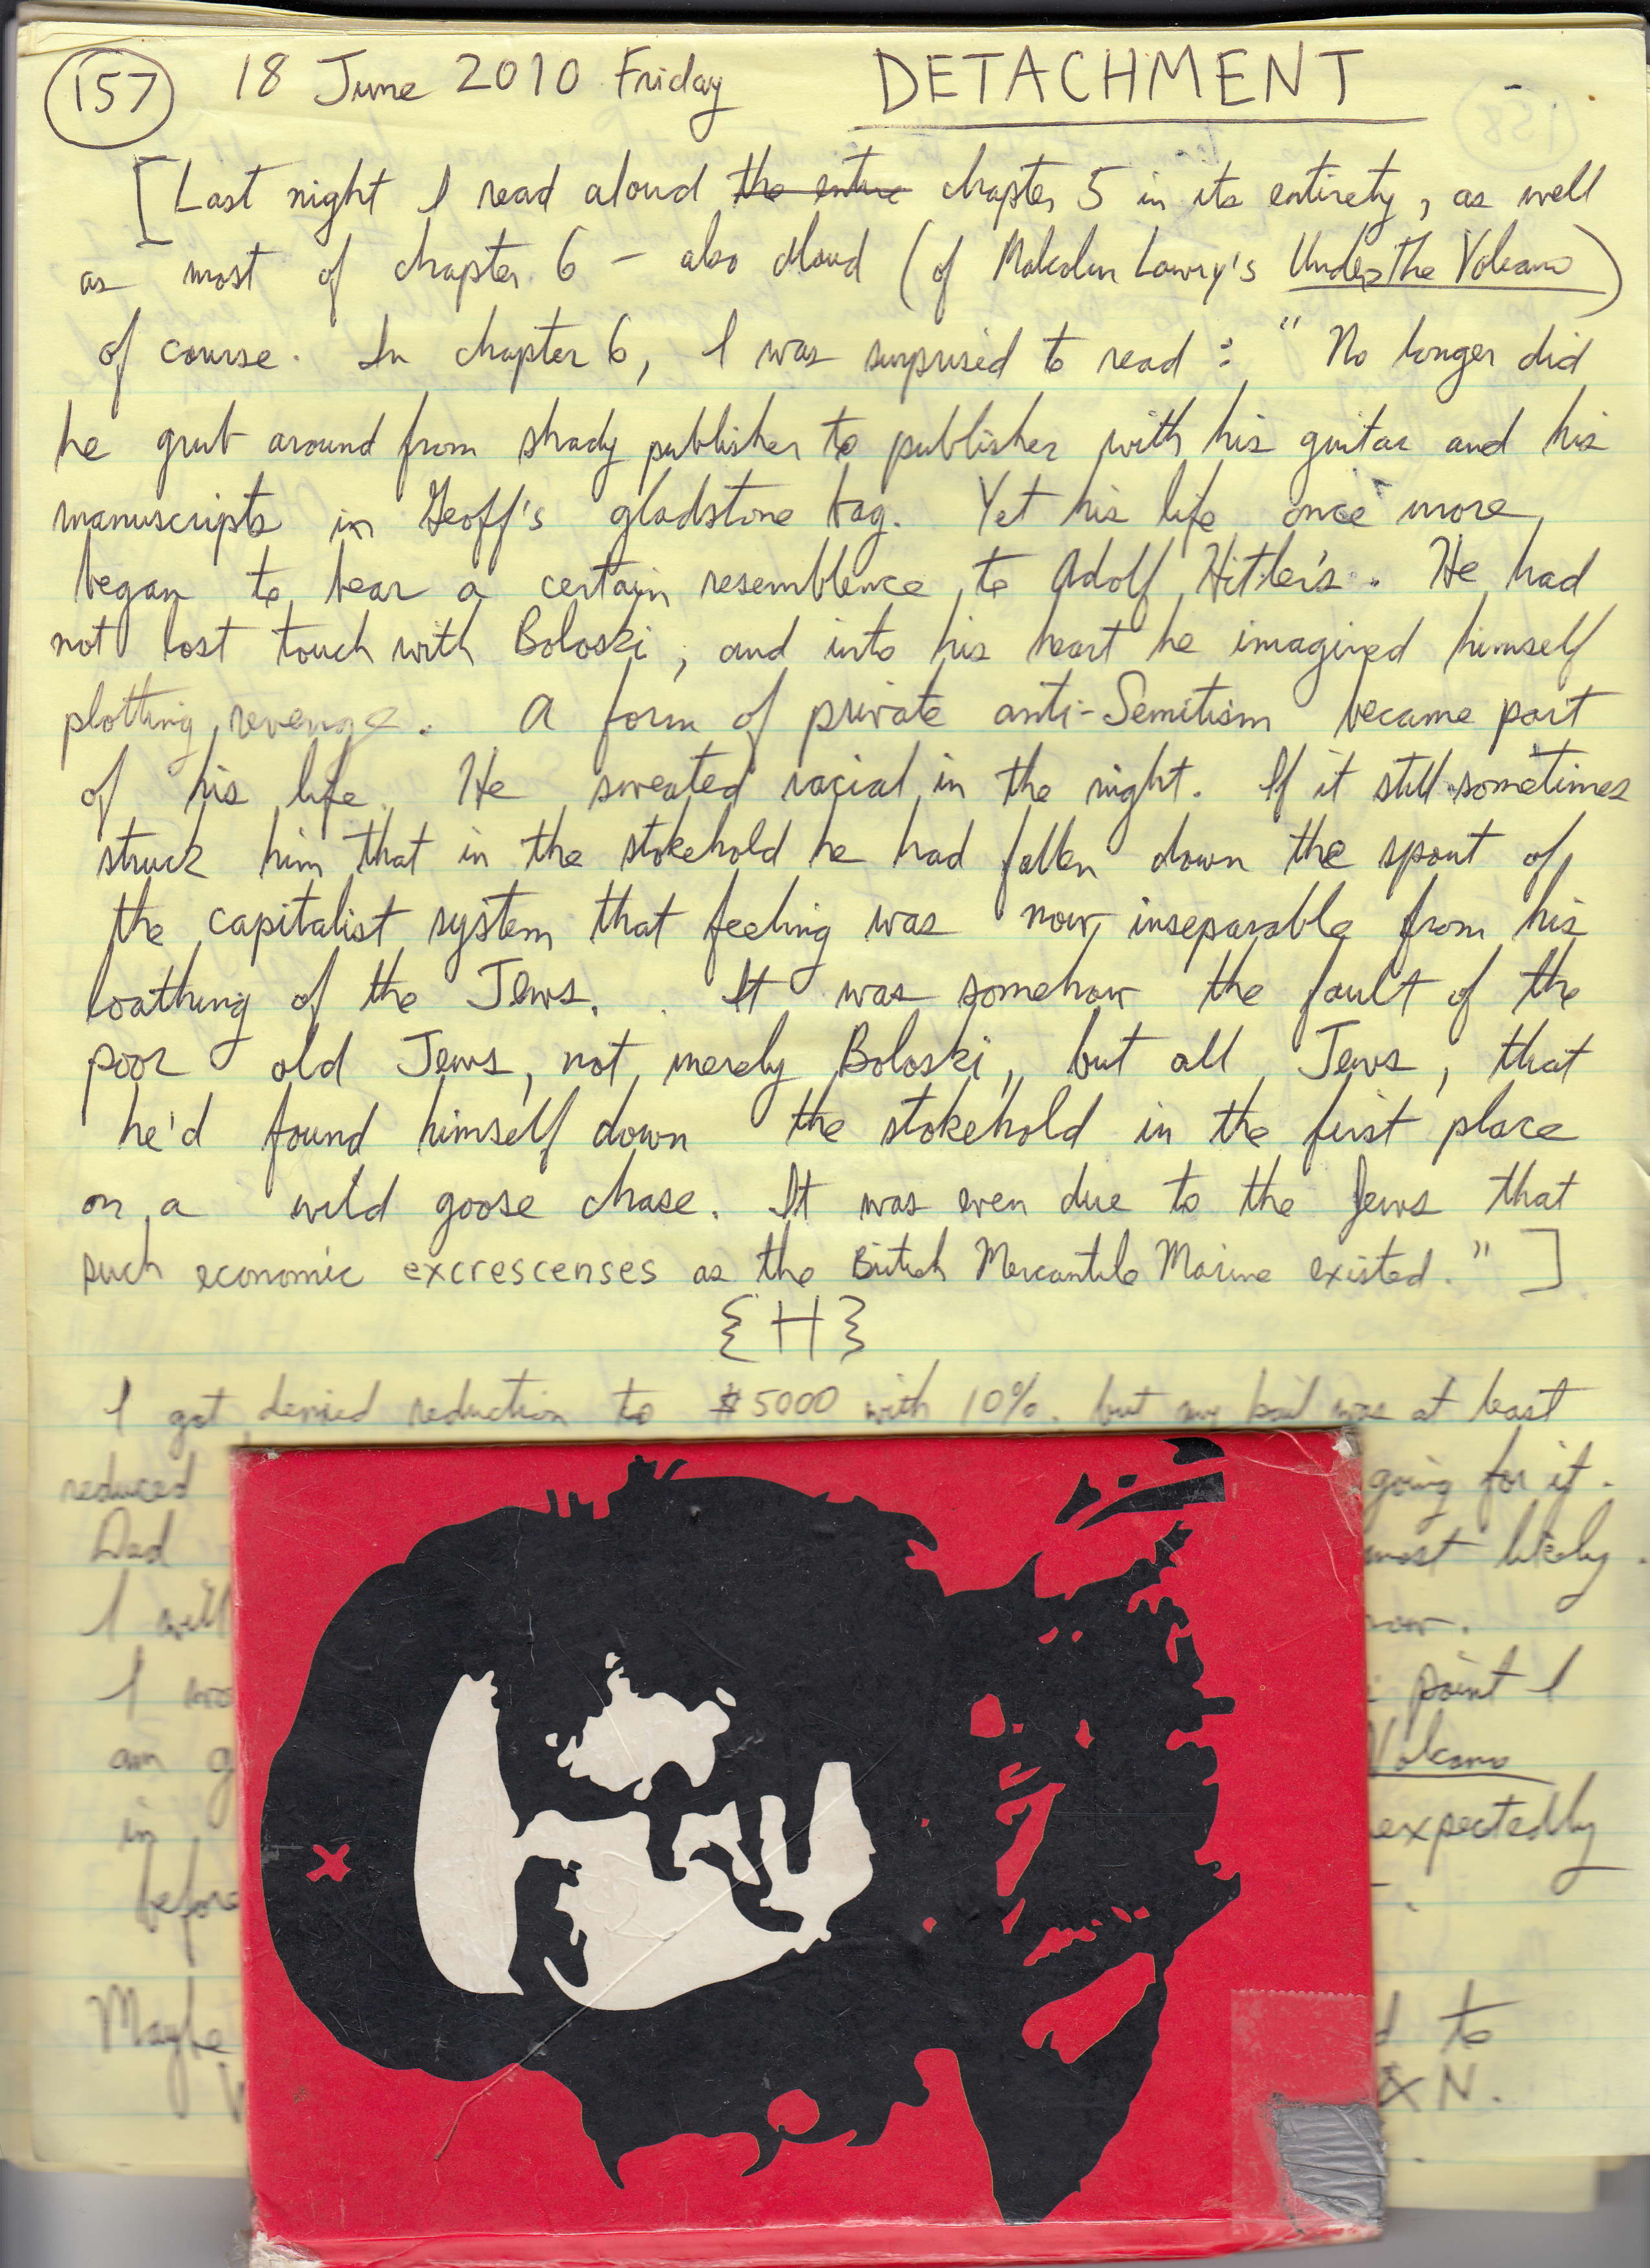 157 18 June 2010 Friday DETACHMENT
[Last night I read aloud the entire chapter 5 in its entirety, as well
as most of chapter 6 - also aloud (of Malcolm Lowry's Under the Volcano)
of course. In chapter 6, I was surprised to read: "No longer did
he grub around from shady publisher to publisher with his guitar and his
manuscripts in Geoff's gladstone bag. Yet his life once more
began to bear a certain resemblence to Adolf Hitler's. He had
not lost touch with Boloski, and into his heart he imagined himself
plotting revenge. A form of private anti-Semitism became part
of his life. He sweated racial in the night. If it still sometimes
struck him that in the stokehold he had fallen down the spout of
the capitalist system that feeling was now inseparable from his
loathing of the Jews. It was somehow the fault of the
poor old Jews, not merely Boloski, but all Jews, that
he'd found himself down the stokehold in the first place
on a wild goose chase. It was even due to the Jews that
such economic excrescenses as the British Mercantile Marine existed."]
{H}
I got denied reduction to $5000 with 10%. but my bail was at least
reduced going for it.
Dad most likely.
I will now.
I point I
am Volcano
in expectedly
before
Maybe to
& N.